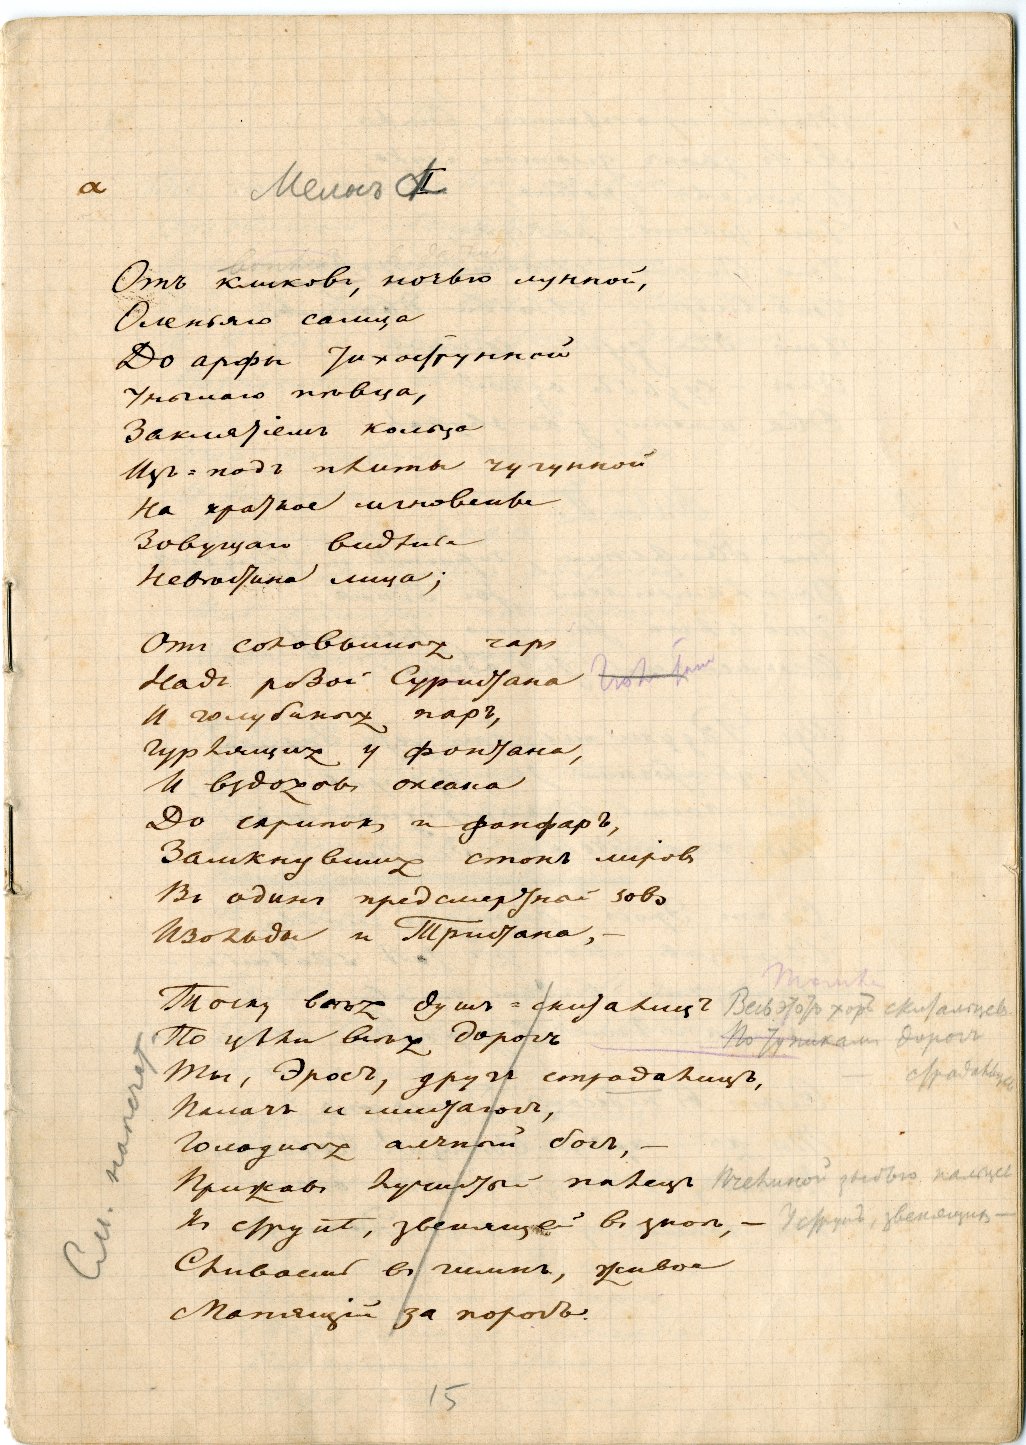 а
Мелосъ II
Отъ кликовъ, ночью лунной,
Оленьяго самца
До арфы тихострунной
Унылаго пѣвца,
Заклятіемъ кольца
Изъ-подъ плиты чугунной
На краткое мгновенье
Зовущаго видѣнье
Невѣстина лица;
Отъ соловьиныхъ чаръ
Надъ розой Суристана
И голубиныхъ паръ,
Гурлящихъ у фонтана,
И вздоховъ океана
До скрипокъ и фанфаръ,
Замкнувшихъ стонъ міровъ
Въ одинъ предсмертной зовъ
Изольды и Тристана, —
Тоску всѣхъ душъ-скиталицъ Весь этотъ хоръ скитальцевъ
По цѣли всѣхъ дорогъ По тупикамъ дорогъ
Ты, Эросъ, другъ страдалицъ, страдальцевъ
Палачъ и мистагогъ,
Голодныхъ алчный богъ, —
Прижавъ лучистый палецъ Пчелиной зыбью пальцевъ
Къ струнѣ, звенящей въ зной, — У струнъ, звенящихъ —
Сливаешь въ гимнъ, живое
Манящій за порогъ.
См. напечат.
15